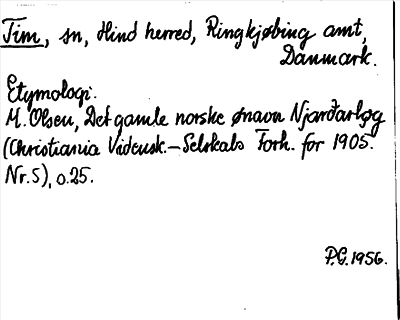 Tim, sn, Hind herred, Ringkjøbing amt,
Danmark.
Etymologi.
M. Olsen, Det gamle norske ønavn Njarðarløg
(Christiania Vidensk.-Selskabs Forh. for 1905.
Nr. 5), s. 25.
P.G. 1956.